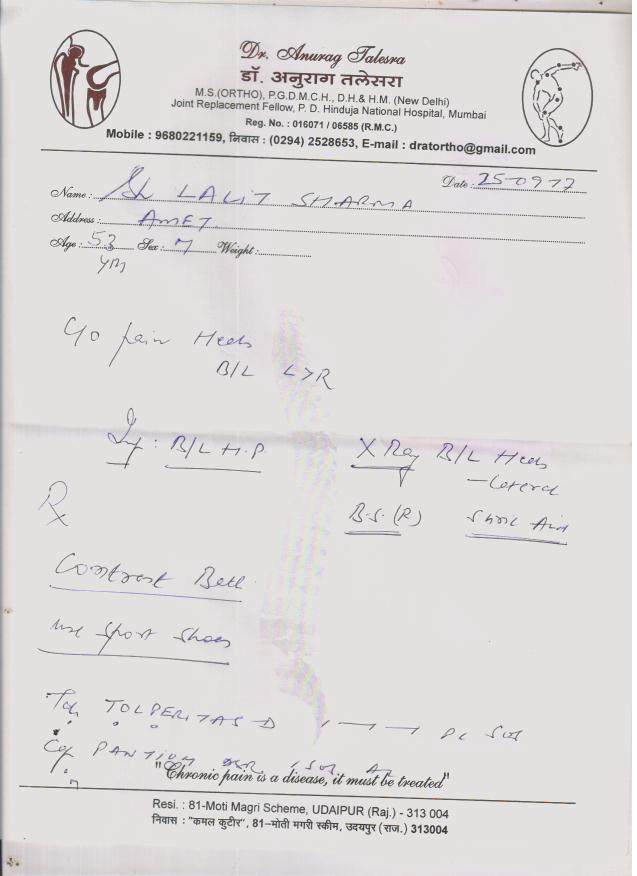 Dr. Anurag Talesra
डॉ. अनुराग तलेसरा
M.S.(ORTHO), P.G.D.M.C.H., D.H.& H.M. (New Delhi)
Joint Replacement Fellow, P. D. Hinduja National Hospital, Mumbai
Reg. No. : 016071 / 06585 (R.M.C.)
Mobile : 9680221159, निवास : (0294) 2528653, E-mail : dratortho@gmail.com
Date : 25-09-17
Name : Sh LALIT SHARMA
Address : AMET.
Age : 53 Sex : M Weight :
yrs
C/o pain Heels
B/L L>R
Imp : B/L H.P
X Ray B/L Heels
- Lateral
B.S. (R) Uric Acid
Rx
Contrast Bath
use Sport Shoes
Tab TOLPERITAS D 1 — —
Cap PANTIUM
"Chronic pain is a disease, it must be treated"
Resi. : 81-Moti Magri Scheme, UDAIPUR (Raj.) - 313 004
निवास : "कमल कुटीर", 81-मोती मगरी स्कीम, उदयपुर (राज.) 313004